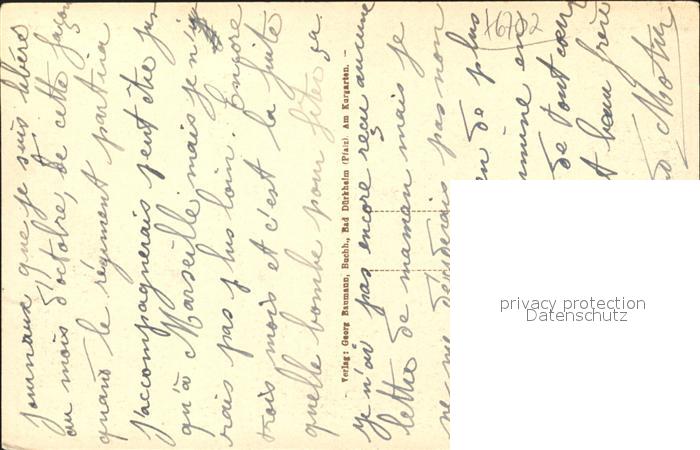 journaux que je suis libéré
au mois d'octobre, de cette façon
quand le régiment partira
j'accompagnerais peut être jus
qu'à Marseille mais je n'y
rais pas plus loin. Encore
trois mois et c'est la fuite
quelle bombe pour fêter ça.
Verlag: Georg Baumann, Buchh., Bad Dürkheim (Pfalz). Am Kurgarten. -
Je n'ai pas encore reçu aucune
lettre de maman mais je
ne me pas non
de plus
en
de tout cœur
beau frère
X6702
privacy protection
Datenschutz